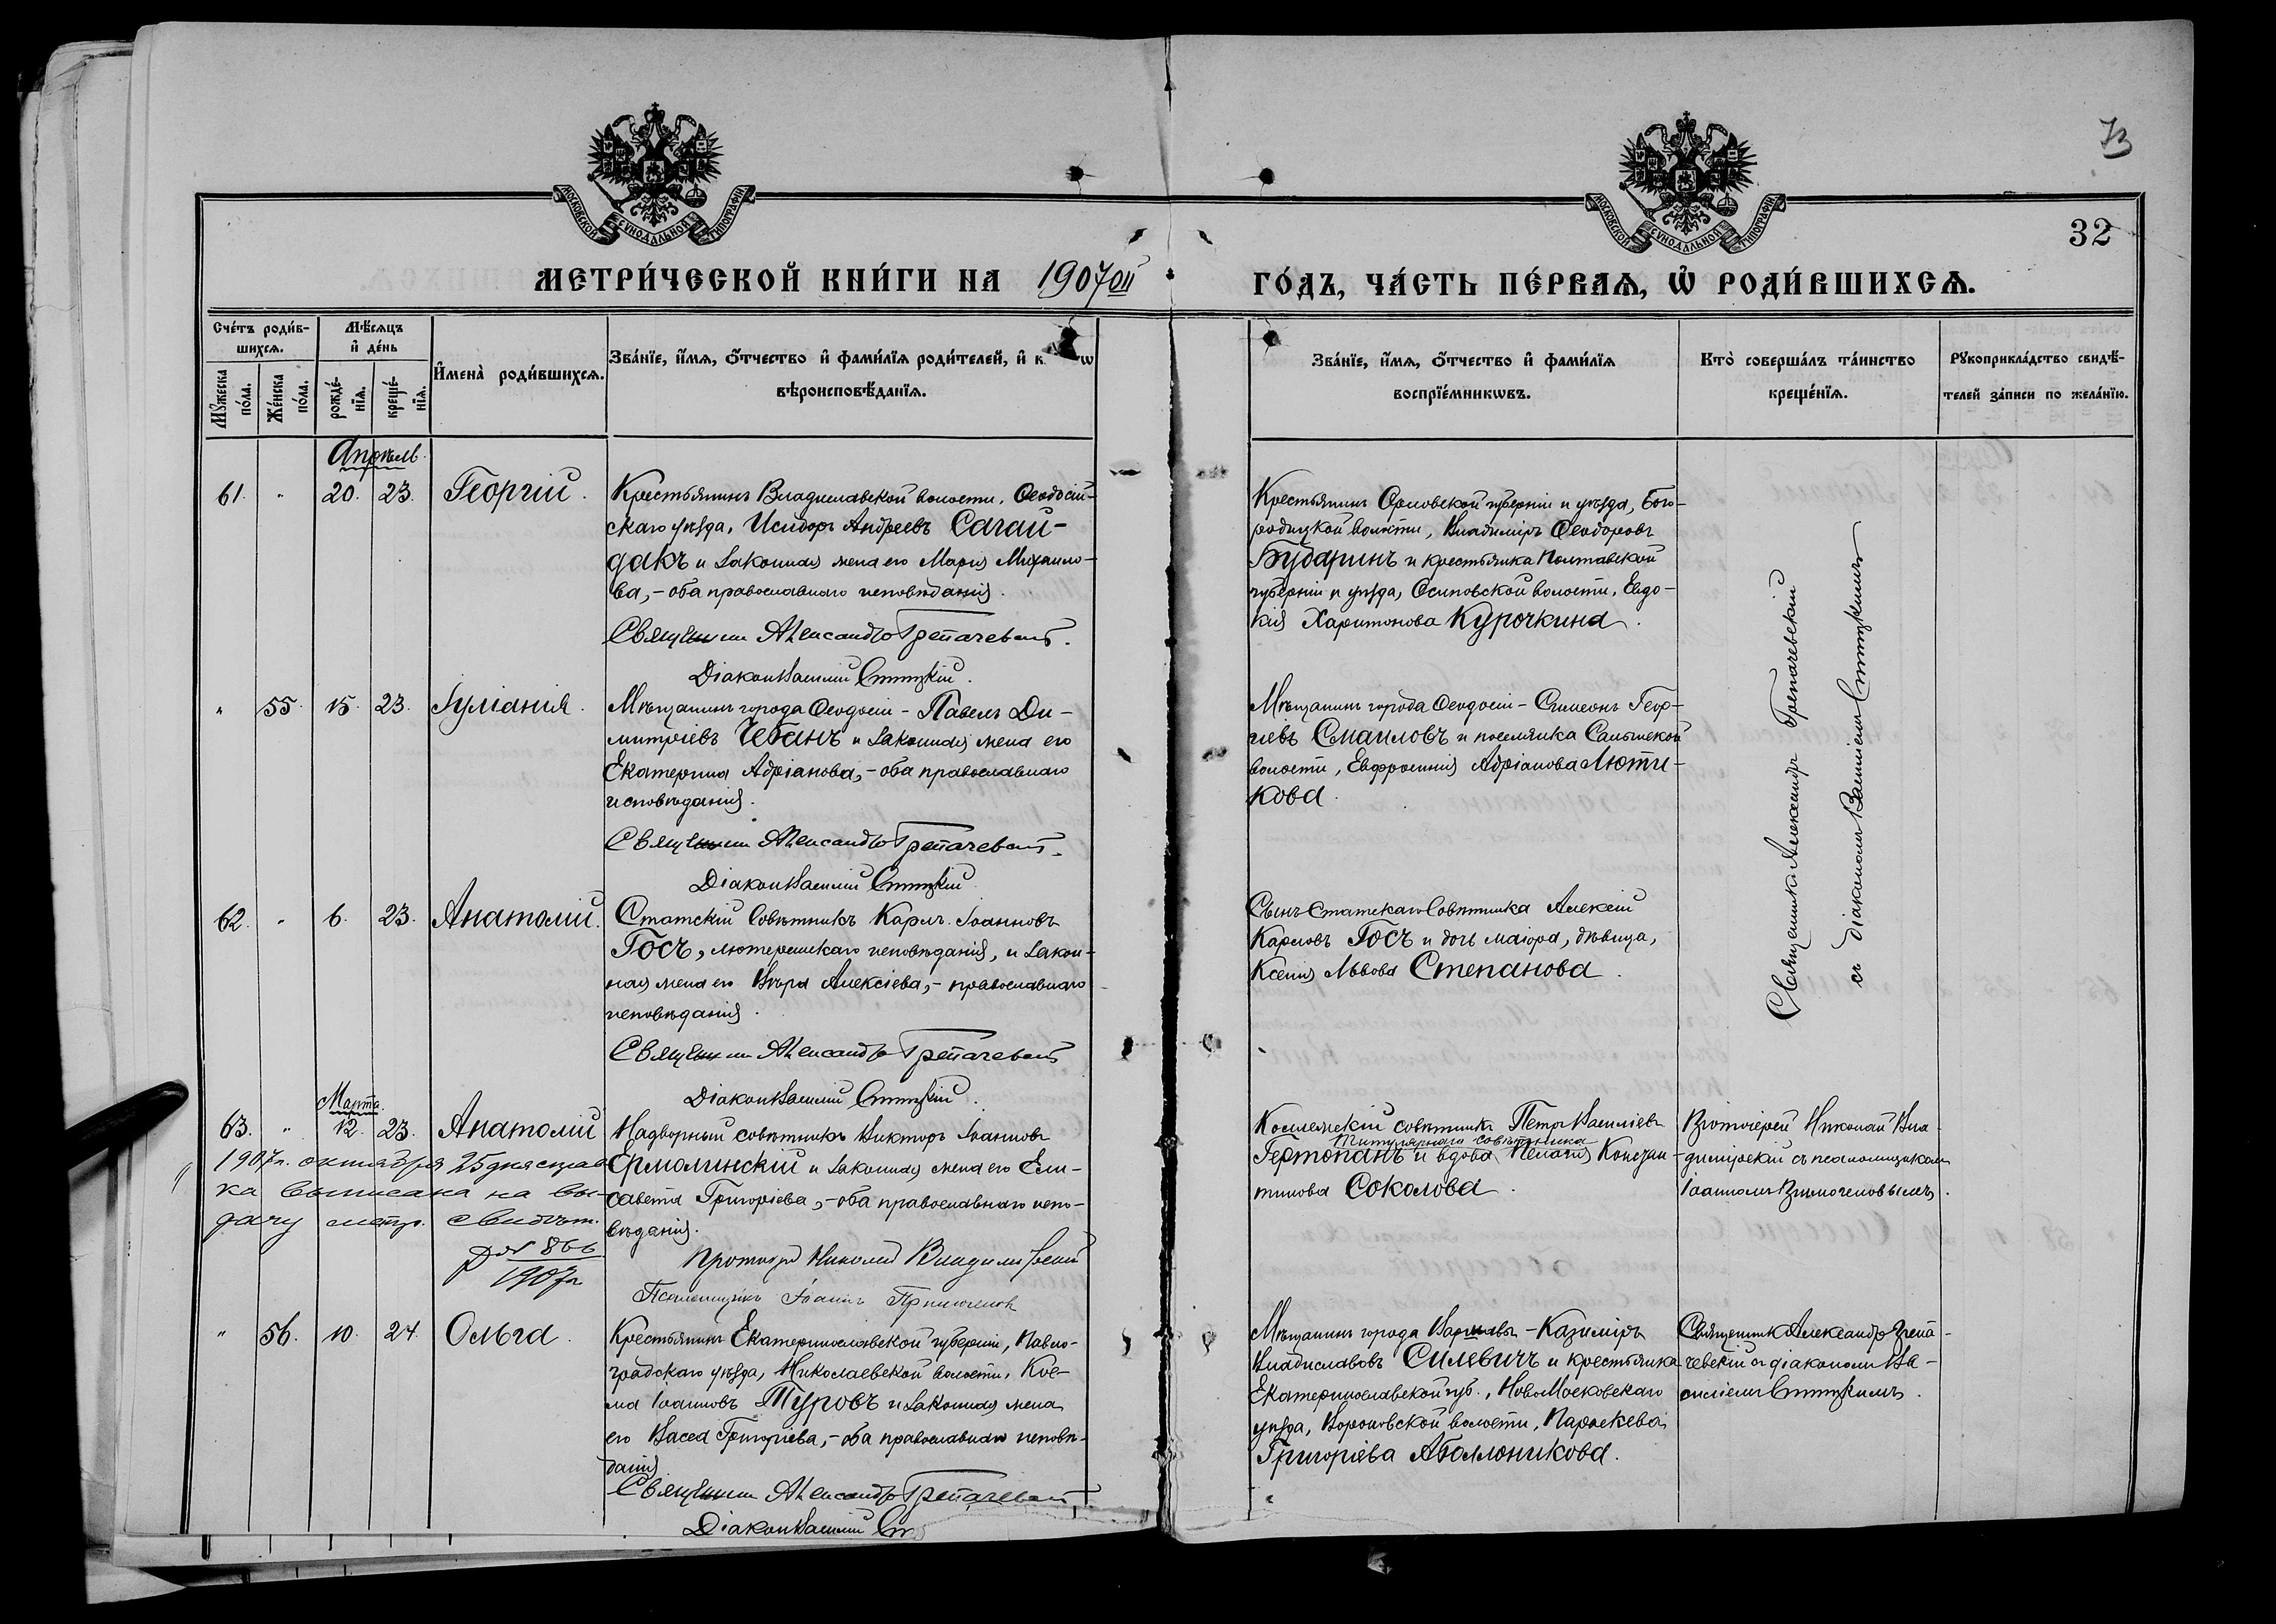 73
32
МОСКОВСКОЙ СѴНОДАЛЬНОЙ ТИПОГРАФІИ
МОСКОВСКОЙ СѴНОДАЛЬНОЙ ТИПОГРАФІИ
МЕТРИ́ЧЕСКОЙ КНИ́ГИ НА 1907ой ГО́ДЪ, ЧА́СТЬ ПЕ́РВАѦ, Ѡ҆ РОДИ́ВШИХСѦ.
Сче́тъ роди́в-
шихсѧ.
Мꙋ́жеска по́ла.
Же́нска по́ла.
Мѣ́сѧцъ
и҆ де́нь
рожде́-
нїѧ.
креще́-
нїѧ.
И҆мена̀ роди́вшихсѧ.
Зва́нїе, и҆́мѧ, ѻ҆́тчество и҆ фами́лїѧ роди́телей, и҆ к ѡ
вѣроисповѣ́данїѧ.
Зва́нїе, и҆́мѧ, ѻ҆́тчество и҆ фами́лїѧ
воспрїе́мникѡвъ.
Кто̀ соверша́лъ та́инство
креще́нїѧ.
Рꙋкоприкла́дство свидѣ́-
телей за́писи по жела́нїю.
Апрѣль
61. " 20. 23. Георгій.
Крестьянинъ Владиславской волости, Ѳеодосій-
скаго уѣзда, Исидоръ Андреевъ Сагай-
дакъ и законная жена его Марія Михаило-
ва, - оба православнаго исповѣданія.
Священникъ Александръ Трепачевскій.
Діаконъ Василій Ступкій.
Крестьянинъ Орловской губерніи и уѣзда, Бого-
родицкой волости, Владиміръ Ѳеодоровъ
Бударинъ и крестьянка Полтавской
губерніи и уѣзда, Осиповской волости, Евдо-
кія Харитонова Курочкина.
Священникъ Александръ Трепачевскій
съ діакономъ Василіемъ Ступкимъ
" 55. 15. 23. Іуліанія.
Мѣщанинъ города Ѳеодосіи - Павелъ Ди-
митріевъ Чебанъ и законная жена его
Екатерина Адріанова, - оба православнаго
исповѣданія.
Священникъ Александръ Трепачевскій.
Діаконъ Василій Ступкій
Мѣщанинъ города Ѳеодосіи - Симеонъ Геор-
гіевъ Смаиловъ и поселянка Салынской
волости, Евфросинія Адріанова Люти-
кова.
62. " 6. 23. Анатолій.
Статскій Совѣтникъ Карлъ Іоанновъ
Госъ, лютеранскаго исповѣданія, и закон-
ная жена его Вѣра Алексіева, - православнаго
исповѣданія.
Священникъ Александръ Трепачевскій
Діаконъ Василій Ступкій.
Сынъ Статскаго Совѣтника Алексій
Карловъ Госъ и дочь маіора, дѣвица,
Ксенія Львова Степанова.
Марта.
63. " 12. 23. Анатолій
Надворный совѣтникъ Викторъ Іоанновъ
Ермолинскій и законная жена его Ели-
савета Григоріева, - оба православнаго испо-
вѣданія.
Протоіерей Николай Владимірскій
Псаломщикъ Іоаннъ
1907 г. октября 25 дня справ
ка выписана на вы-
дачу метр. свидѣт.
№ 866
1907 г.
Коллежскій совѣтникъ Петръ Василіевъ
Титулярнаго совѣтника
Гертопанъ и вдова Пелагія Констан-
тинова Соколова.
Протоіерей Николай Вла-
димірскій съ псаломщикомъ
Іоанномъ
" 56. 10. 24. Ольга.
Крестьянинъ Екатеринославской губерніи, Павло-
градскаго уѣзда, Николаевской волости, Кос-
ма Іоанновъ Туровъ и законная жена
его Васса Григоріева, - оба православнаго исповѣ-
данія
Священникъ Александръ Трепачевскій
Діаконъ Василій
Мѣщанинъ города Варшавы - Казиміръ
Владиславовъ Силевичъ и крестьянка
Екатеринославской губ., Новомосковскаго
уѣзда, Вороновской волости, Параскева
Григоріева Аболюникова.
Священникъ Александръ Трепа-
чевскій съ діакономъ Ва-
силіемъ Ступкимъ.